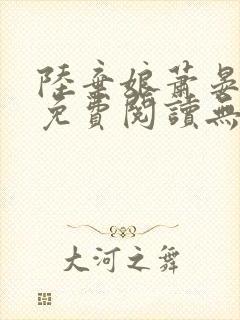 陸棄娘蕭晏
免費閱讀無
大河之舞